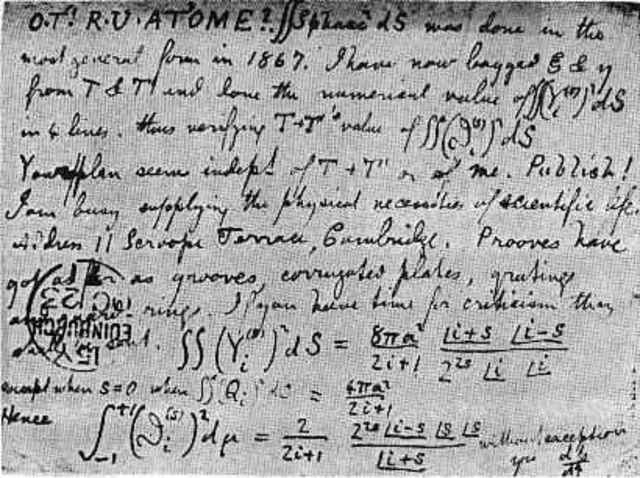 O.T'. R.U. AT'OME? ∬Spharc² dS was done in the
most general form in 1867. I have now bagged ξ & η
from T & T' and done the numerical value of ∬(Y_i^(s))² dS
in 4 lines. thus verifying T+T''s value of ∬(ϑ_i^(s))² dS
Your plan seems indept of T + T' or of me. Publish!
I am busy supplying the physical necessities of scientific life
Address 11 Scroope Terrace, Cambridge. Prooves have
got as far as grooves, corrugated plates, gratings
rings. If you have time for criticism then
EDINBURGH
∬(Y_i^(s))² dS = 8πa²/(2i+1) |i+s |i-s / 2^{2s} |i |i
except when s=0 when ∬(Q_i)² dS = 4πa²/(2i+1)
Hence
∫_{-1}^{+1} (ϑ_i^(s))² dμ = 2/(2i+1) 2^{2s} |i-s |s |s / |i+s without exception
yrs dp/dt